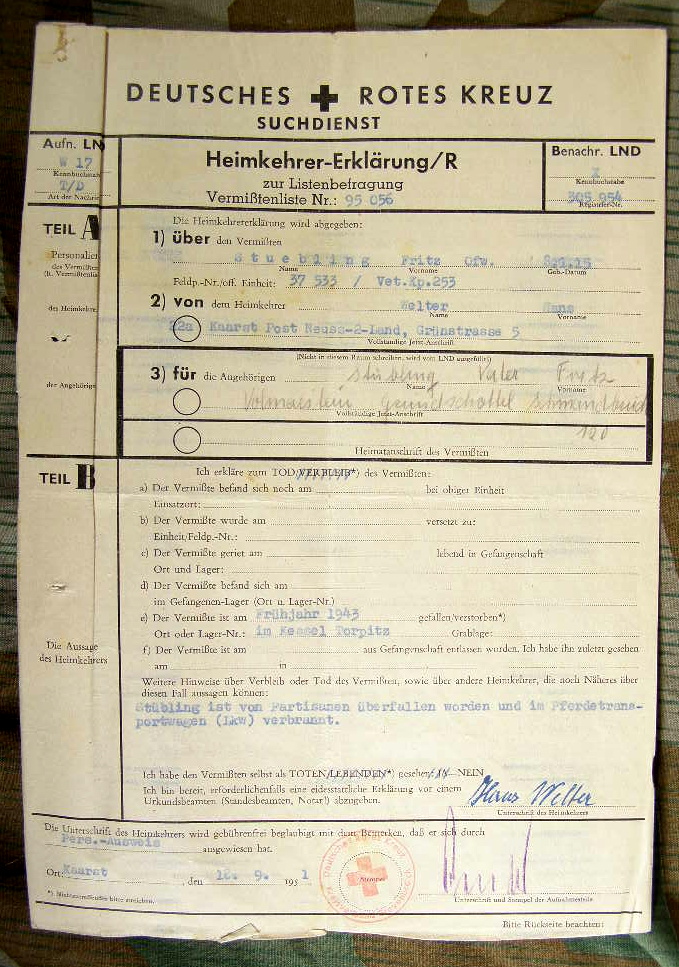 DEUTSCHES ROTES KREUZ
SUCHDIENST
Aufn. LN
W 17
Kennbuchsta
T/D
Art der Nachric
Heimkehrer-Erklärung/R
zur Listenbefragung
Vermißtenliste Nr.: 95 056
Benachr. LND
X
Kennbuchstabe
305 954
Registrier-Nr.
TEIL A
Die Heimkehrererklärung wird abgegeben:
1) über den Vermißten
Personalien
des Vermißten
(lt. Vermißtenliste
Stuebling Fritz Ofw.
Name Vorname Geb.-Datum
Feldp.-Nr./off. Einheit: 37 533 / Vet.Kp.253
des Heimkehre
2) von dem Heimkehrer Welter Hans
Name Vorname
22a Kaarst Post Neuss-2-Land, Grünstrasse 5
Vollständige Jetzt-Anschrift
(Nicht in diesem Raum schreiben, wird vom LND ausgefüllt)
der Angehörige
3) für die Angehörigen Stübling Vater Fritz
Name Vorname
Volmarstein
Vollständige Jetzt-Anschrift
Heimatanschrift des Vermißten
TEIL B
Ich erkläre zum TOD/VERBLEIB*) des Vermißten:
a) Der Vermißte befand sich noch am bei obiger Einheit
Einsatzort:
b) Der Vermißte wurde am versetzt zu:
Einheit/Feldp.-Nr.:
c) Der Vermißte geriet am lebend in Gefangenschaft
Ort und Lager:
d) Der Vermißte befand sich am
im Gefangenen-Lager (Ort u. Lager-Nr.)
e) Der Vermißte ist am Frühjahr 1943 gefallen/verstorben*)
Ort oder Lager-Nr.: im Kessel Torpitz Grablage:
Die Aussage
des Heimkehrers
f) Der Vermißte ist am aus Gefangenschaft entlassen worden. Ich habe ihn zuletzt gesehen
am in
Weitere Hinweise über Verbleib oder Tod des Vermißten, sowie über andere Heimkehrer, die noch Näheres über
diesen Fall aussagen können:
Stübling ist von Partisanen überfallen worden und im Pferdetrans-
portwagen (Lkw) verbrannt.
Ich habe den Vermißten selbst als TOTEN/LEBENDEN*) gesehen: NEIN
Ich bin bereit, erforderlichenfalls eine eidesstattliche Erklärung vor einem
Urkundsbeamten (Standesbeamten, Notar!) abzugeben.
Hans Welter
Unterschrift des Heimkehrers
Die Unterschrift des Heimkehrers wird gebührenfrei beglaubigt mit dem Bemerken, daß er sich durch
Pers.-Ausweis ausgewiesen hat.
Ort: Kaarst , den 12. 9. 195 1
Deutsches Rotes Kreuz
Stempel
*) Nichtzutreffendes bitte streichen.
Unterschrift und Stempel der Aufnahmestelle
Bitte Rückseite beachten!